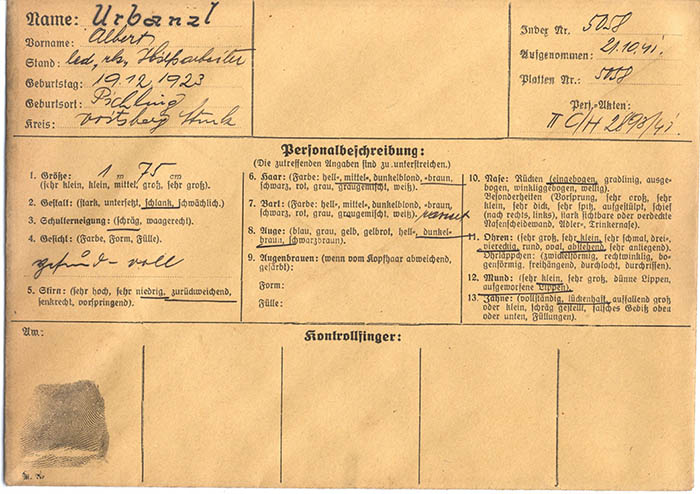 Name: Urbanzl
Vorname: Albert
Stand: led, rk, Hilfsarbeiter
Geburtstag: 19.12.1923
Geburtsort: Pichling
Kreis: Voitsberg Stmk
Index Nr. 5058
Aufgenommen: 21.10.41.
Platten Nr.: 5058
Pers.-Akten:
II C/H 2898/41
Personalbeschreibung:
(Die zutreffenden Angaben sind zu unterstreichen.)
1. Größe: 1 m 75 cm
(sehr klein, klein, mittel, groß, sehr groß).
2. Gestalt: (stark, untersetzt, schlank, schwächlich).
3. Schulterneigung: (schräg, waagerecht).
4. Gesicht: (Farbe, Form, Fülle).
gesund - voll
5. Stirn: (sehr hoch, sehr niedrig, zurückweichend,
senkrecht, vorspringend).
6. Haar: (Farbe: hell-, mittel-, dunkelblond, -braun,
schwarz, rot, grau, graugemischt, weiß).
7. Bart: (Farbe: hell-, mittel-, dunkelblond, -braun,
schwarz, rot, grau, graugemischt, weiß). rasiert
8. Auge: (blau, grau, gelb, gelbrot, hell-, dunkel-
braun, schwarzbraun).
9. Augenbrauen: (wenn vom Kopfhaar abweichend,
gefärbt):
Form:
Fülle:
10. Nase: Rücken (eingebogen, gradlinig, ausge-
bogen, winkliggebogen, wellig).
Besonderheiten (Vorsprung, sehr groß, sehr
klein, sehr dick, sehr spitz, aufgestülpt, schief
(nach rechts, links), stark sichtbare oder verdeckte
Nasenscheidewand, Adler-, Trinkernase).
11. Ohren: (sehr groß, sehr klein, sehr schmal, drei-,
viereckig, rund, oval, abstehend, sehr anliegend).
Ohrläppchen: (zwickelförmig, rechtwinklig, bo-
genförmig, freihängend, durchlocht, durchrissen).
12. Mund: (sehr klein, sehr groß, dünne Lippen,
aufgeworfene Lippen).
13. Zähne: (vollständig, lückenhaft, auffallend groß
oder klein, schräg gestellt, falsches Gebiß oben
oder unten, Füllungen).
Aw.:
Kontrollfinger: